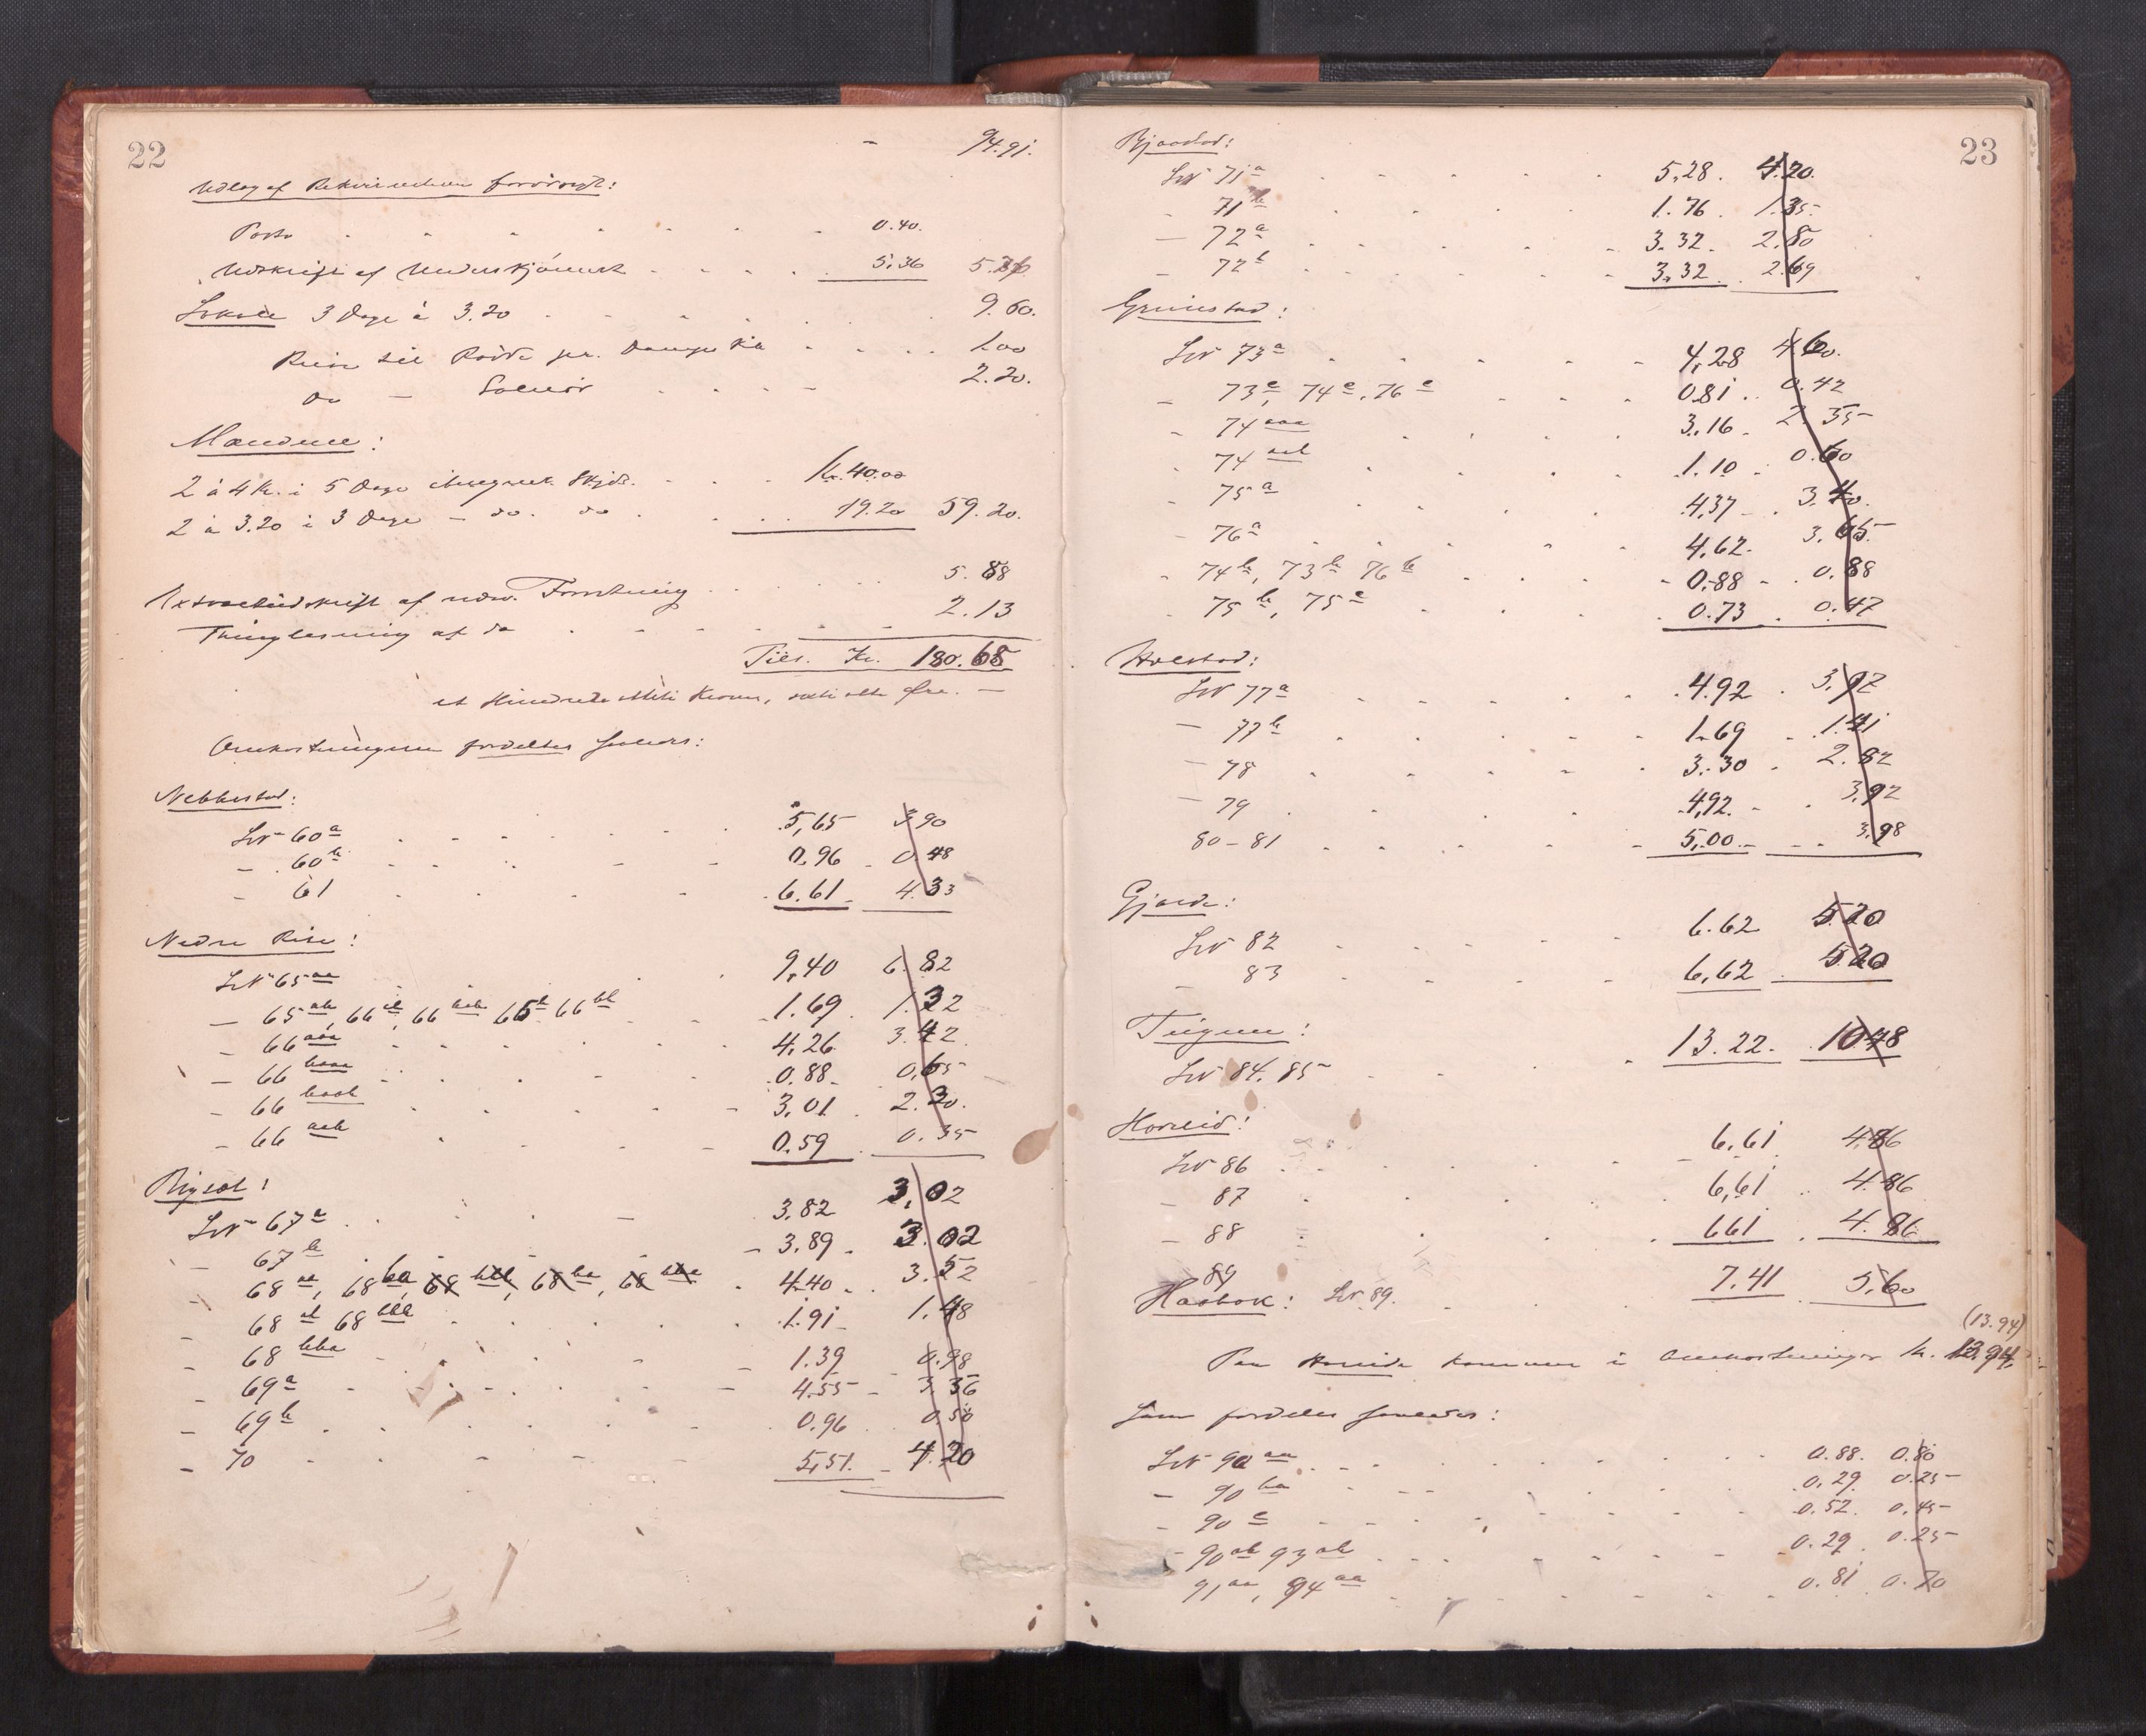 22
- 94.91.
Udlæg af Rekvirenterne forørigt:
Porto 0.40.
Udskrift af Underskjønnet 5.36 5.76
Lokale 3 Dage á 3.20 9.60.
Reise til pr. Dampskib 1.00
Do - 2.20.
Mændene:
2 á 4 Kr. i 5 Dage iberegnet Skyds. Kr. 40.00
2 á 3.20 i 3 Dage - do. do 19.20 59.20.
Extractudskrift af nærv. Forretning 5.88
Thinglesning af do 2.13
Tils. Kr. 180.68
et Hundrede otteti Kroner, seksti otte Øre. -
Omkostningerne fordeltes saaledes:
Nebbestad:
LN 60 a 5,65 3 90
- 60 b 0.96 0 48
- 61 6.61 4.33
Nedre Rise:
LN 65 aa 9,40 6.82
- 65 ab, 66 66 65 b 66 bb 1.69 1.32
- 66 aaa 4,26 3.42
- 66 baaa 0.88 0,65
- 66 baab 3,01 2.30.
- 66 aab 0.59 0.35
LN 67 a 3.82 3,02
- 67 b 3.89 3.02
- 68 aa, 68 ba, 68 bbb, 68 ba, 68 4.40 3.52
- 68 ab 68 bbb 1.91 1.48
- 68 bba 1.39 0.98
- 69 a 4.55 3.36
- 69 b 0.96 0.50
- 70 5,51. 4.20
23
Bjaastad:
LN 71 a 5,28. 4.20.
- 71 b 1.76 1.35
- 72 a 3.32 2.80
- 72 b 3.32 2.69
Grimestad:
LN 73 a 4,28 4 60.
- 73 c, 74 c, 76 c 0.81 0.42
- 74 aaa 3.16 2.35
- 74 aab 1.10 0.60
- 75 a 4,37 3.40.
- 76 a 4,62. 3.65
- 74 b, 73 b 76 b 0.88 0.88
- 75 b, 75 c 0.73 0.47
Holstad:
LN 77 a 4.92 3.92
- 77 b 1.69 1.41
- 78 3.30 2.82
- 79 4,92 3,92
80-81 5,00 3,98
Gjærde:
LN 82 6.62 5.20
- 83 6,62 5 20
LN 84. 85 13.22. 10 48
LN 86 6,61 4.86
- 87 6,61 4.86
- 88 6 61 4.86
89
Hasbok: LN 89. 7.41 5,60
(13.94)
Paa kommer i Omkostninger Kr. 13.94,
som fordeles saaledes:
LN 90 aa 0.88. 0.80
- 90 ba 0.29 0.25
- 90 c 0.52. 0.45
- 90 ab 93 ab 0.29. 0.25
91 aa, 94 aa 0.81 0.70